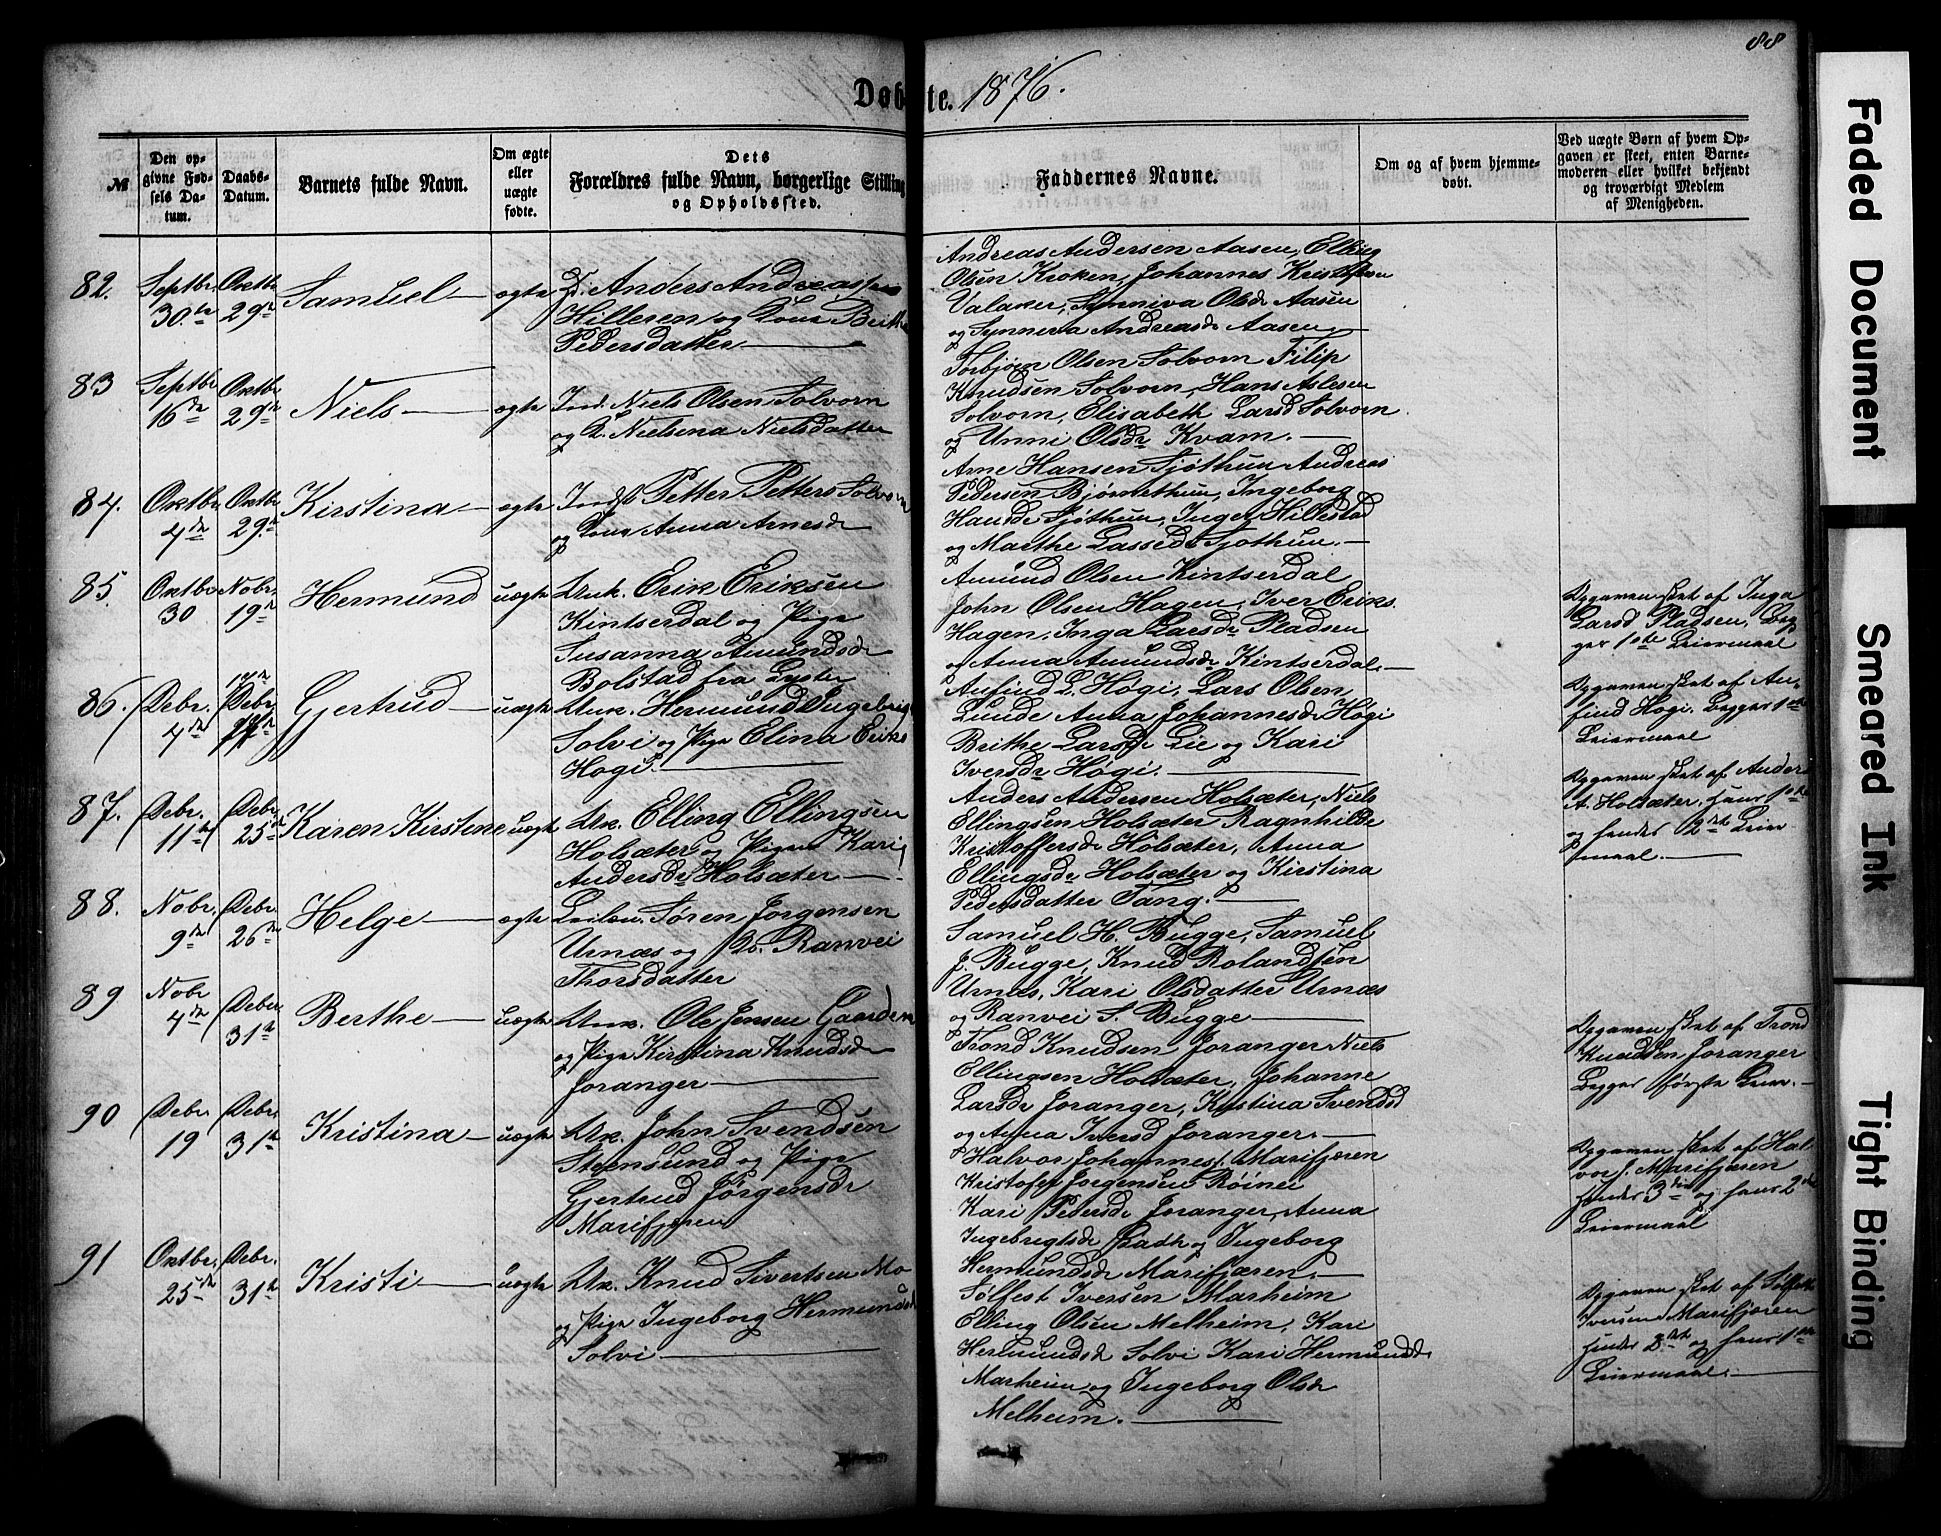 88
Døbte. 1876.
№
Den opgivne Fødsels Datum.
Daabs-Datum.
Barnets fulde Navn.
Om ægte eller uægte fødte.
Dets Forældres fulde Navn, borgerlige Stilling og Opholdssted.
Faddernes Navne.
Om og af hvem hjemmedøbt.
Ved uægte Børn af hvem Opgaven er skeet, enten Barnemoderen eller hvilket bekjendt og troværdigt Medlem af Menigheden.
82.
Septbr. 30.te
Oktbr. 29de
Samuel
ægte
Anders Andreassen
Hilleren og Kone Brithe
Pedersdatter
Andreas Andersen Aasen, Elling
Olsen Kroken, Johannes Kristofersen
Valaker, Synniva Olsdr Aasen
og Synneva Andreasdr Aasen
83
Septbr. 16de
Oktbr. 29de
Niels
ægte
Ind. Niels Olsen Solvorn
og K. Nielsena Nielsdatter
Torbjørn Olsen Solvorn Filip
Knudsen Solvorn, Hans Aslesen
Solvorn, Elisabeth Larsd Solvorn
og Unni Olsdr Kvam.
84.
Oktbr. 4de
Oktbr. 29.de
Kirstina
ægte
Petter Petters Solvorn
og Kone Anna Arnesdr
Arne Hansen Sjøthun Andreas
Pedersen Bjørnethun, Ingeborg
Hansdr Sjøthun, Inger Hillestad
og Marthe Lassedr Sjøthun.
85.
Oktbr. 30
Nobr. 19de
Hermund
uægte
Unk. Erik Eriksen
Kintserdal og Pige
Susanna Amundsdr
Bolstad fra Lyster
Amund Olsen Kintserdal
John Olsen Hagen, Iver Eriks.
Hagen, Inga Larsdr Pladsen
og Anna Amundsdr Kintserdal.
Opgaven sket af Inga
Larsd Pladsen, Begges
1ste Leiermaal
86.
Debr. 4de
17de
Debr.
Gjertrud
uægte
Unk. Hermund Ingebrigts
Solvi og Pige Elina Eriks
Høgi.
Anfind L. Høgi, Lars Olsen
Lunde Anna Johannesdr Høgi
Brithe Larsdr Lie og Kari
Iversdr Høgi.
Opgaven sket af Anfind
Høgi. Begges 1ste
Leiermaal
87.
Debr. 11te
Debr. 25de
Karen Kirstine
uægte
Uk. Elling Ellingsen
Holsæter og Pigen Kari
Andersdr Holsæter
Anders Andersen Holsæter, Niels
Ellingsen Holsæter Ragnhilde
Kristoffersdr Holsæter, Anna
Ellingsdr Holsæter og Kirstina
Pedersdatter Tang.
Opgaven sket af Anders
A. Holsæter. Hans 1ste
og hendes 2det Leiermaal.
88.
Nobr. 9de
Debr. 26de
Helge
ægte
Søren Jørgensen
Urnæs og Ranvei
Thorsdatter
Samuel H. Bugge, Samuel
J. Bugge, Knud Rolandsen
Urnæs, Kari Olsdatter Urnæs
og Ranvei S. Bugge
89
Nobr 4de
Debr 31te
Berthe
uægte
Unk. Ole Jensen Gaarden
og Pige Kirstina Knudsdr
Joranger
Trond Knudsen Joranger Niels
Ellingsen Holsæter, Johanne
Larsdr Joranger, Kirstina Svendsd
og Anna Iversd Joranger.
Opgaven sket af Trond
Knudsen Joranger
Begges første Leierm.
90
Debr. 19
Debr. 31te
Kristina
uægte
Uk. John Svendsen
Steensund og Pige
Gjertrud Jørgensdr
Marifjøren
Halvor Johannes. Marifjæren
Kristofer Jørgensen Røinei
Kari Pedersdr Joranger, Anna
Ingebrigtsdr Badh og Ingeborg
Hermundsdr Marifjæren.
Opgaven sket af Halvor
J. Marifjæren
Hendes 3die og hans 2det
Leiermaal
91
Oktbr. 25de
Debr. 31te
Kristi
uægte
Uk. Knud Sivertsen Mo
og Pige Ingeborg Hermundsd
Solvi
Sølfest Iversen Marheim
Elling Olsen Melheim, Kari
Hermundsd Solvi Kari Hermundsd
Marheim og Ingeborg Olsdr
Melheim.
Opgaven sket af Sølfest
Iversen Marifjøren
Hendes 2det og hans 1ste
Leiermaal.
Faded Document
Smeared Ink
Tight Binding